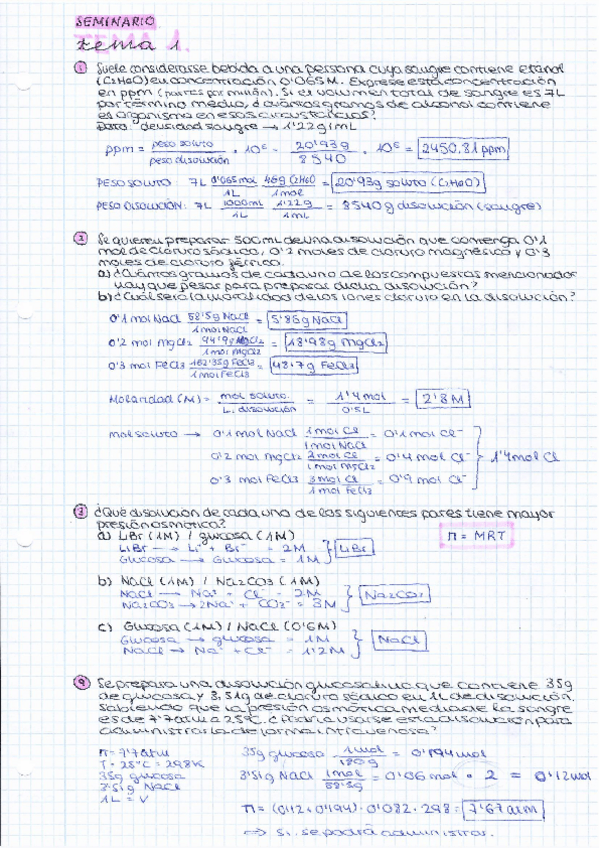 SEMINARIO
tema 1.
① Suele considerarse bebida a una persona cuya sangre contiene etanol
(C2H6O) en concentración 0'065M. Exprese esta concentración
en ppm (partes por millón). Si el volumen total de sangre es 7L
por término medio, ¿cuántos gramos de alcohol contiene
el organismo en esas circustancias?
Dato: densidad sangre → 1'22g/mL
ppm = peso soluto / peso disolución · 10⁶ = 20'93g / 8540 · 10⁶ = 2450.81 ppm
PESO SOLUTO: 7L 0'065mol/1L 46g C2H6O/1mol = 20'93g soluto (C2H6O)
PESO DISOLUCIÓN: 7L 1000mL/1L 1'22g/1mL = 8540g disolución (sangre)
② Se quieren preparar 500mL de una disolución que contenga 0'1
mol de cloruro sódico, 0'2 moles de cloruro magnésico y 0'3
moles de cloruro férrico.
a) ¿Cuántos gramos de cada uno de los compuestos mencionados
hay que pesar para preparar dicha disolución?
b) ¿Cuál será la molaridad de los iones cloruro en la disolución?
0'1 mol NaCl 58'5g NaCl/1mol NaCl = 5'85g NaCl
0'2 mol MgCl2 94'9g MgCl2/1mol MgCl2 = 18'98g MgCl2
0'3 mol FeCl3 162'35g FeCl3/1mol FeCl3 = 48'7g FeCl3
Molaridad (M) = mol soluto / L. disolución = 1'4mol / 0'5L = 2'8M
mol soluto → 0'1 mol NaCl 1mol Cl⁻/1mol NaCl = 0'1 mol Cl⁻
0'2 mol MgCl2 2mol Cl⁻/1mol MgCl2 = 0'4 mol Cl⁻ } 1'4mol Cl
0'3 mol FeCl3 3mol Cl⁻/1mol FeCl3 = 0'9 mol Cl⁻
③ ¿Qué disolución de cada uno de los siguientes pares tiene mayor
presión osmótica?
π = MRT
a) LiBr (1M) / glucosa (1M)
LiBr → Li⁺ + Br⁻ = 2M } LiBr
Glucosa → Glucosa = 1M
b) NaCl (1M) / Na2CO3 (1M)
NaCl → Na⁺ + Cl⁻ = 2M } Na2CO3
Na2CO3 → 2Na⁺ + CO3²⁻ = 3M
c) Glucosa (1M) / NaCl (0'6M)
Glucosa → glucosa = 1M } NaCl
NaCl → Na⁺ + Cl⁻ = 1'2M
④ Se prepara una disolución glucosalina que contiene 35g
de glucosa y 3,51g de cloruro sódico en 1L de disolución.
Sabiendo que la presión osmótica media de la sangre
es de 7'7atm a 25ºC. ¿Podría usarse esta disolución para
administrarla de forma intravenosa?
π = 7'7atm
T = 25ºC = 298K
35g glucosa
3'51g NaCl
1L = V
35g glucosa 1mol/180g = 0'194mol
3'51g NaCl 1mol/58'5g = 0'06 mol · 2 = 0'12mol
π = (0'12+0'194)·0'082·298 = 7'67atm
⇒ Sí se podrá administrar.